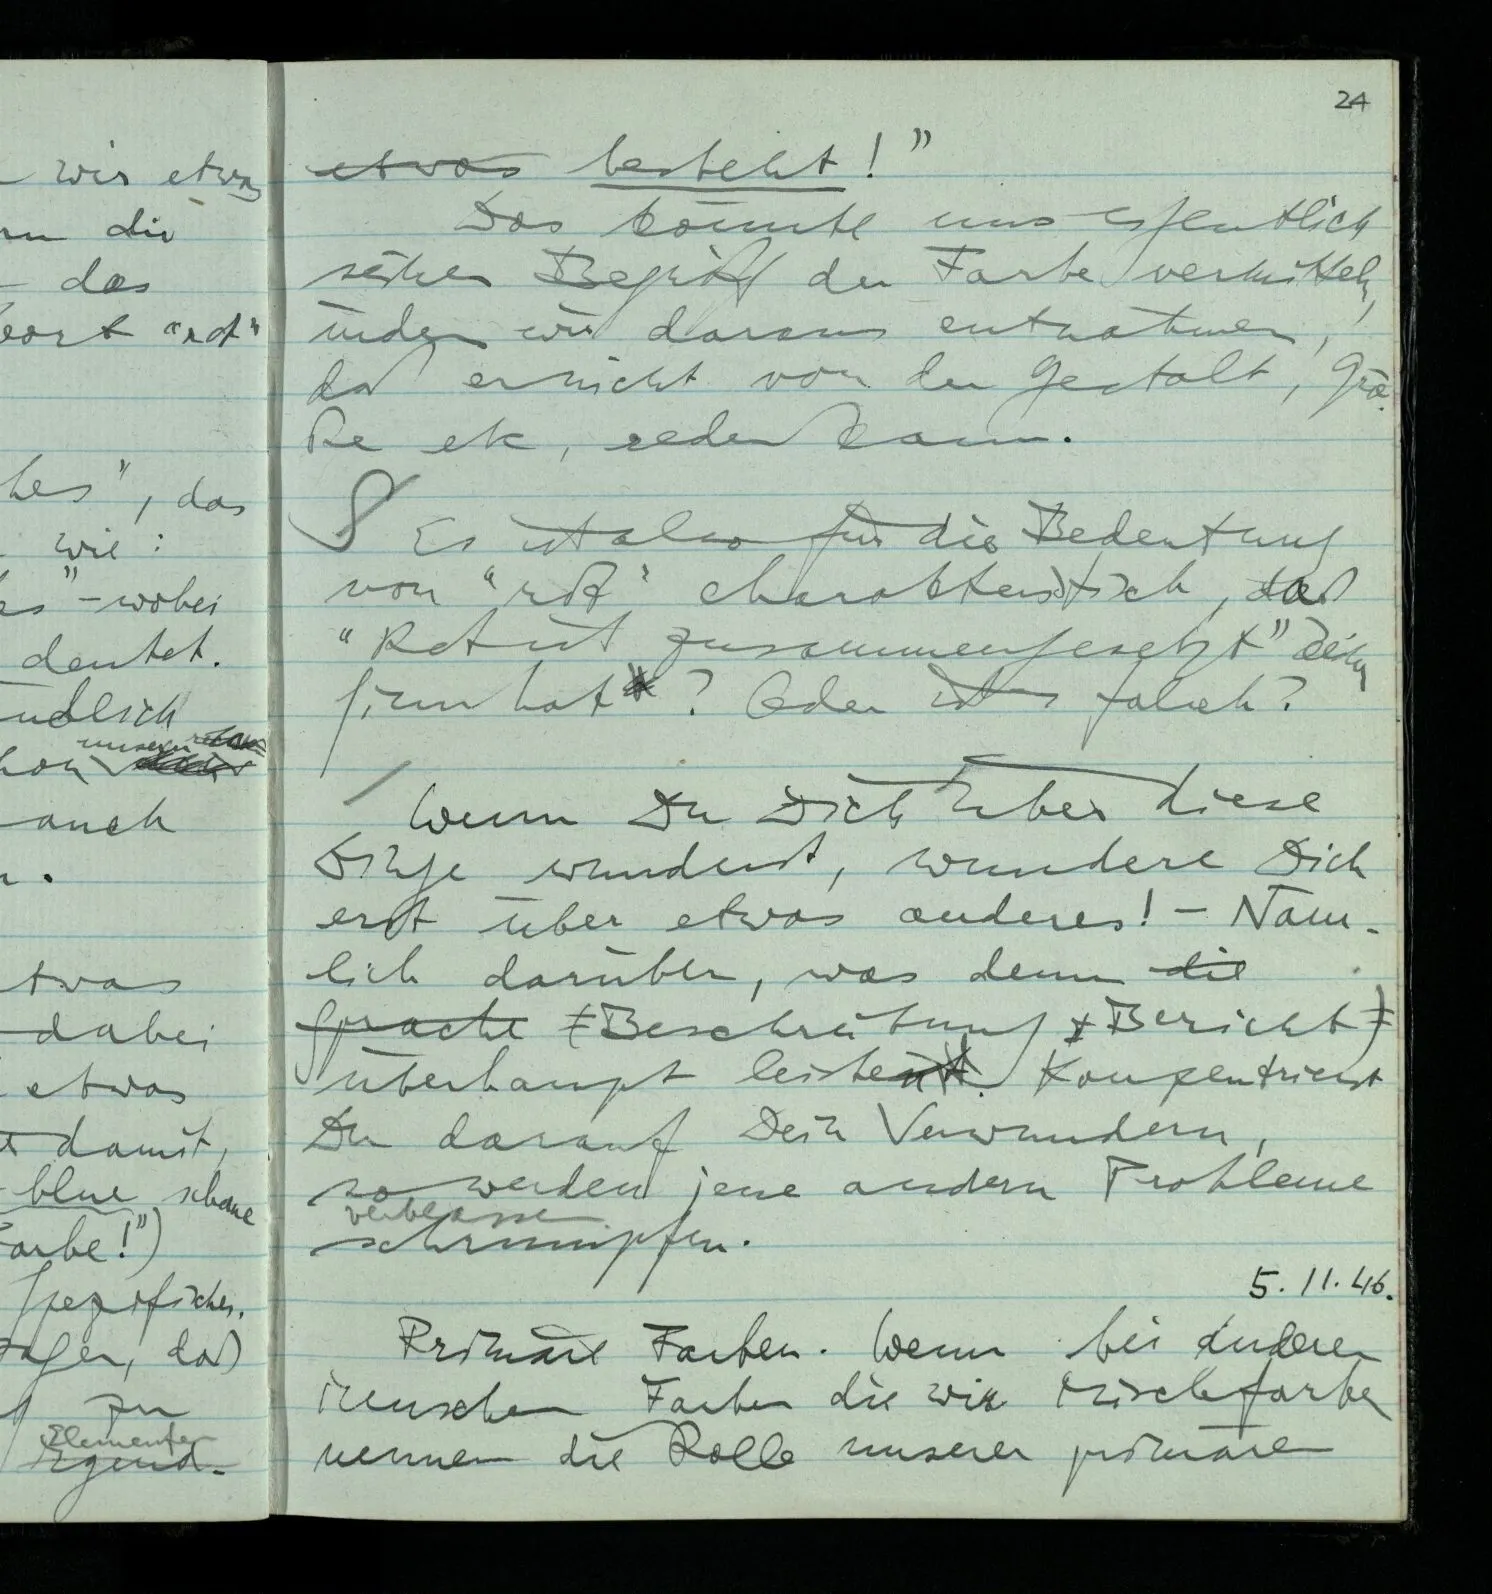 24
wir etwas
die
das
Wort "rot"
", das
wie:
" – wobei
deutet.
unseren
auch
etwas
dabei
etwas
damit,
blue schaue
Farbe!")
spezifisches,
sagen, daß
zu
Elementen
Irgend-
etwas besteht!"
Das könnte uns eigentlich
seinen Begriff der Farbe vermitteln,
indem wir daraus entnähmen,
daß er nicht von der Gestalt, Grö-
ße etc, reden kann.
S Es ist also für die Bedeutung
von "rot" charakteristisch, daß
"Rot ist zusammengesetzt" keinen
Sinn hat? Oder ist das falsch?
/ Wenn Du Dich über diese
Dinge wunderst, wundere Dich
erst über etwas anderes! – Näm-
lich darüber, was denn die
Sprache (Beschreibung & Bericht)
überhaupt leisten. Konzentrierst
Du darauf Dein Verwundern,
so werden jene andern Probleme
verblassen
schrumpfen.
5.11.46.
Primäre Farben. Wenn bei anderen
Menschen Farben die wir Mischfarben
nennen die Rolle unserer primären